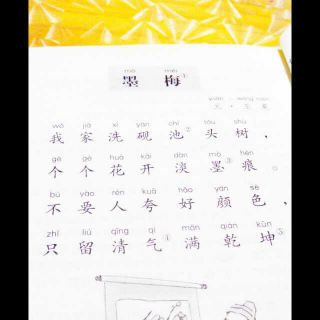 mò méi
墨 梅①
yuán wáng miǎn
元·王冕
wǒ jiā xǐ yàn chí tóu shù
我家洗砚池②头树，
gè gè huā kāi dàn mò hén
个个花开淡墨③痕。
bú yào rén kuā hǎo yán sè
不要人夸好颜色，
zhǐ liú qīng qì mǎn qián kūn
只留清气④满乾坤⑤